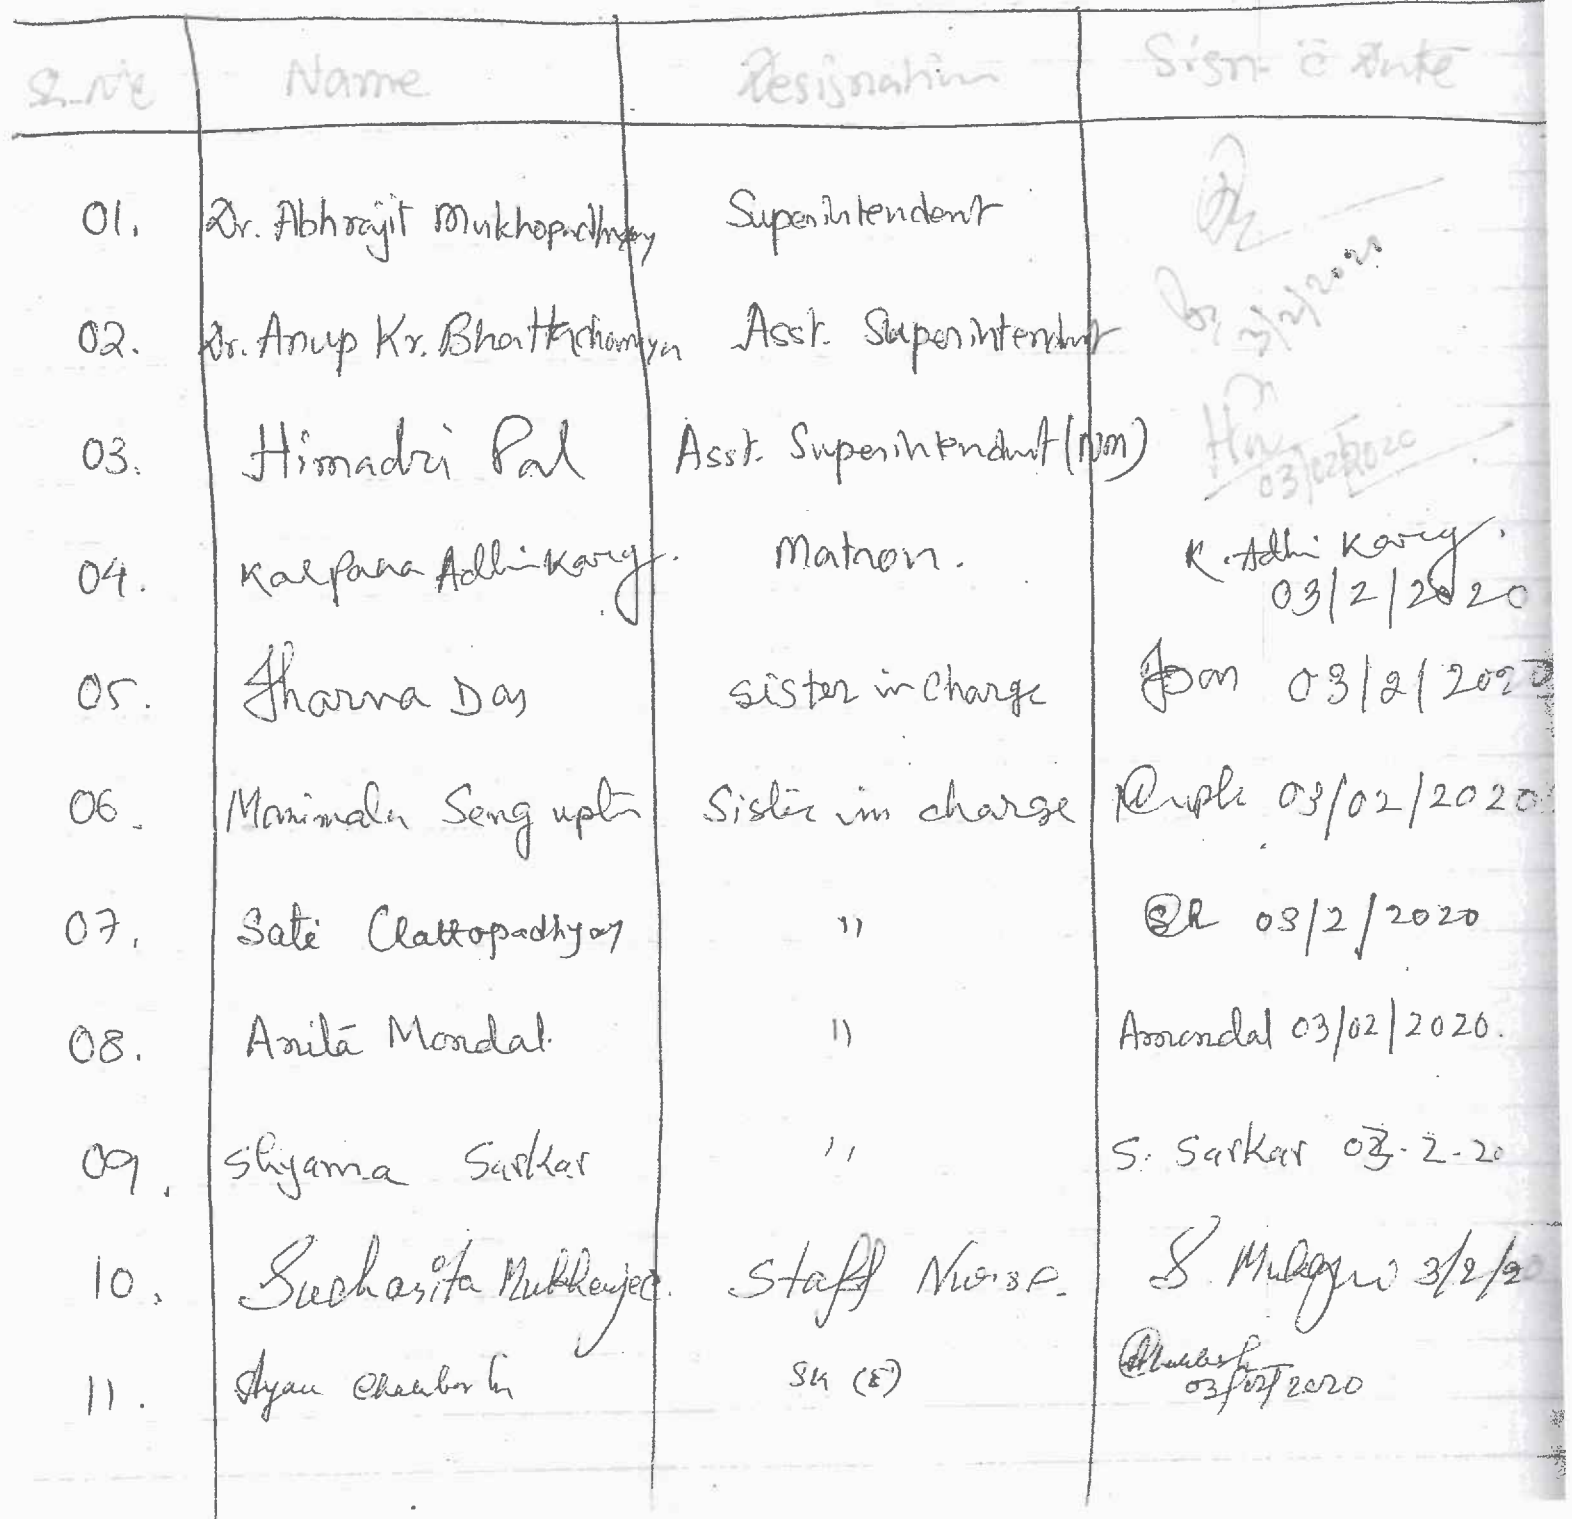 Sl. No Name Designation Sign. c̄ Date
01. Dr. Abhrajit Mukhopadhyay Superintendent
02. Dr. Anup Kr. Bhattacharyya Asst. Superintendent
03. Himadri Pal Asst. Superintendent (NM)
03/02/2020
04. Kalpana Adhikary. Matron. K. Adhikary.
03/2/2020
05. Jharna Das sister in Charge JDas 03/2/2020
06. Manimala Sengupta Sister in charge 03/02/2020
07. Sati Chattopadhyay " 03/2/2020
08. Anita Mondal. " Amondal 03/02/2020.
09. Shyama Sarkar " S. Sarkar 03-2-20
10. Suchasita Mukherjee. Staff Nurse. S. Mukherjee 3/2/20
11. SK (E)
03/02/2020